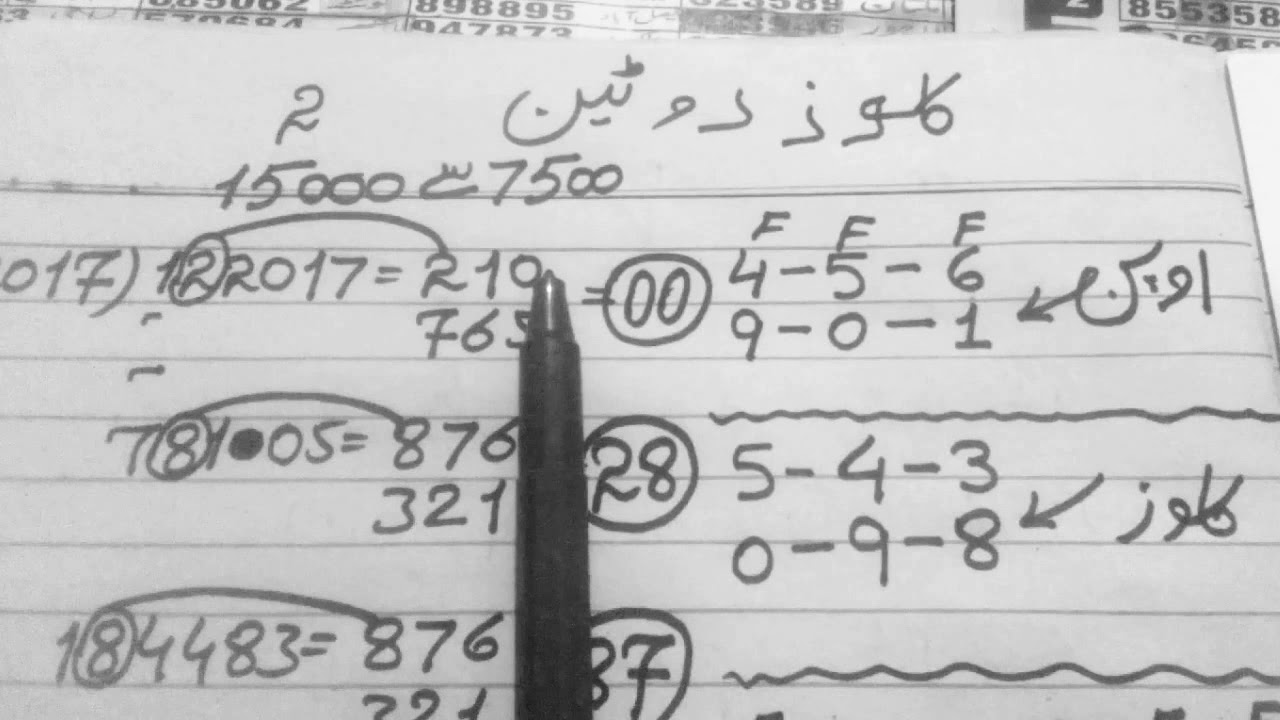 898895
947873
855358
کلوز دو ٹین
2
15000 سے 7500
017) 122017 = 210 = 00
765
F F F
4 - 5 - 6
9 - 0 - 1
781•05 = 876 28
321
5 - 4 - 3
0 - 9 - 8
کلوز
184483 = 876 37
321